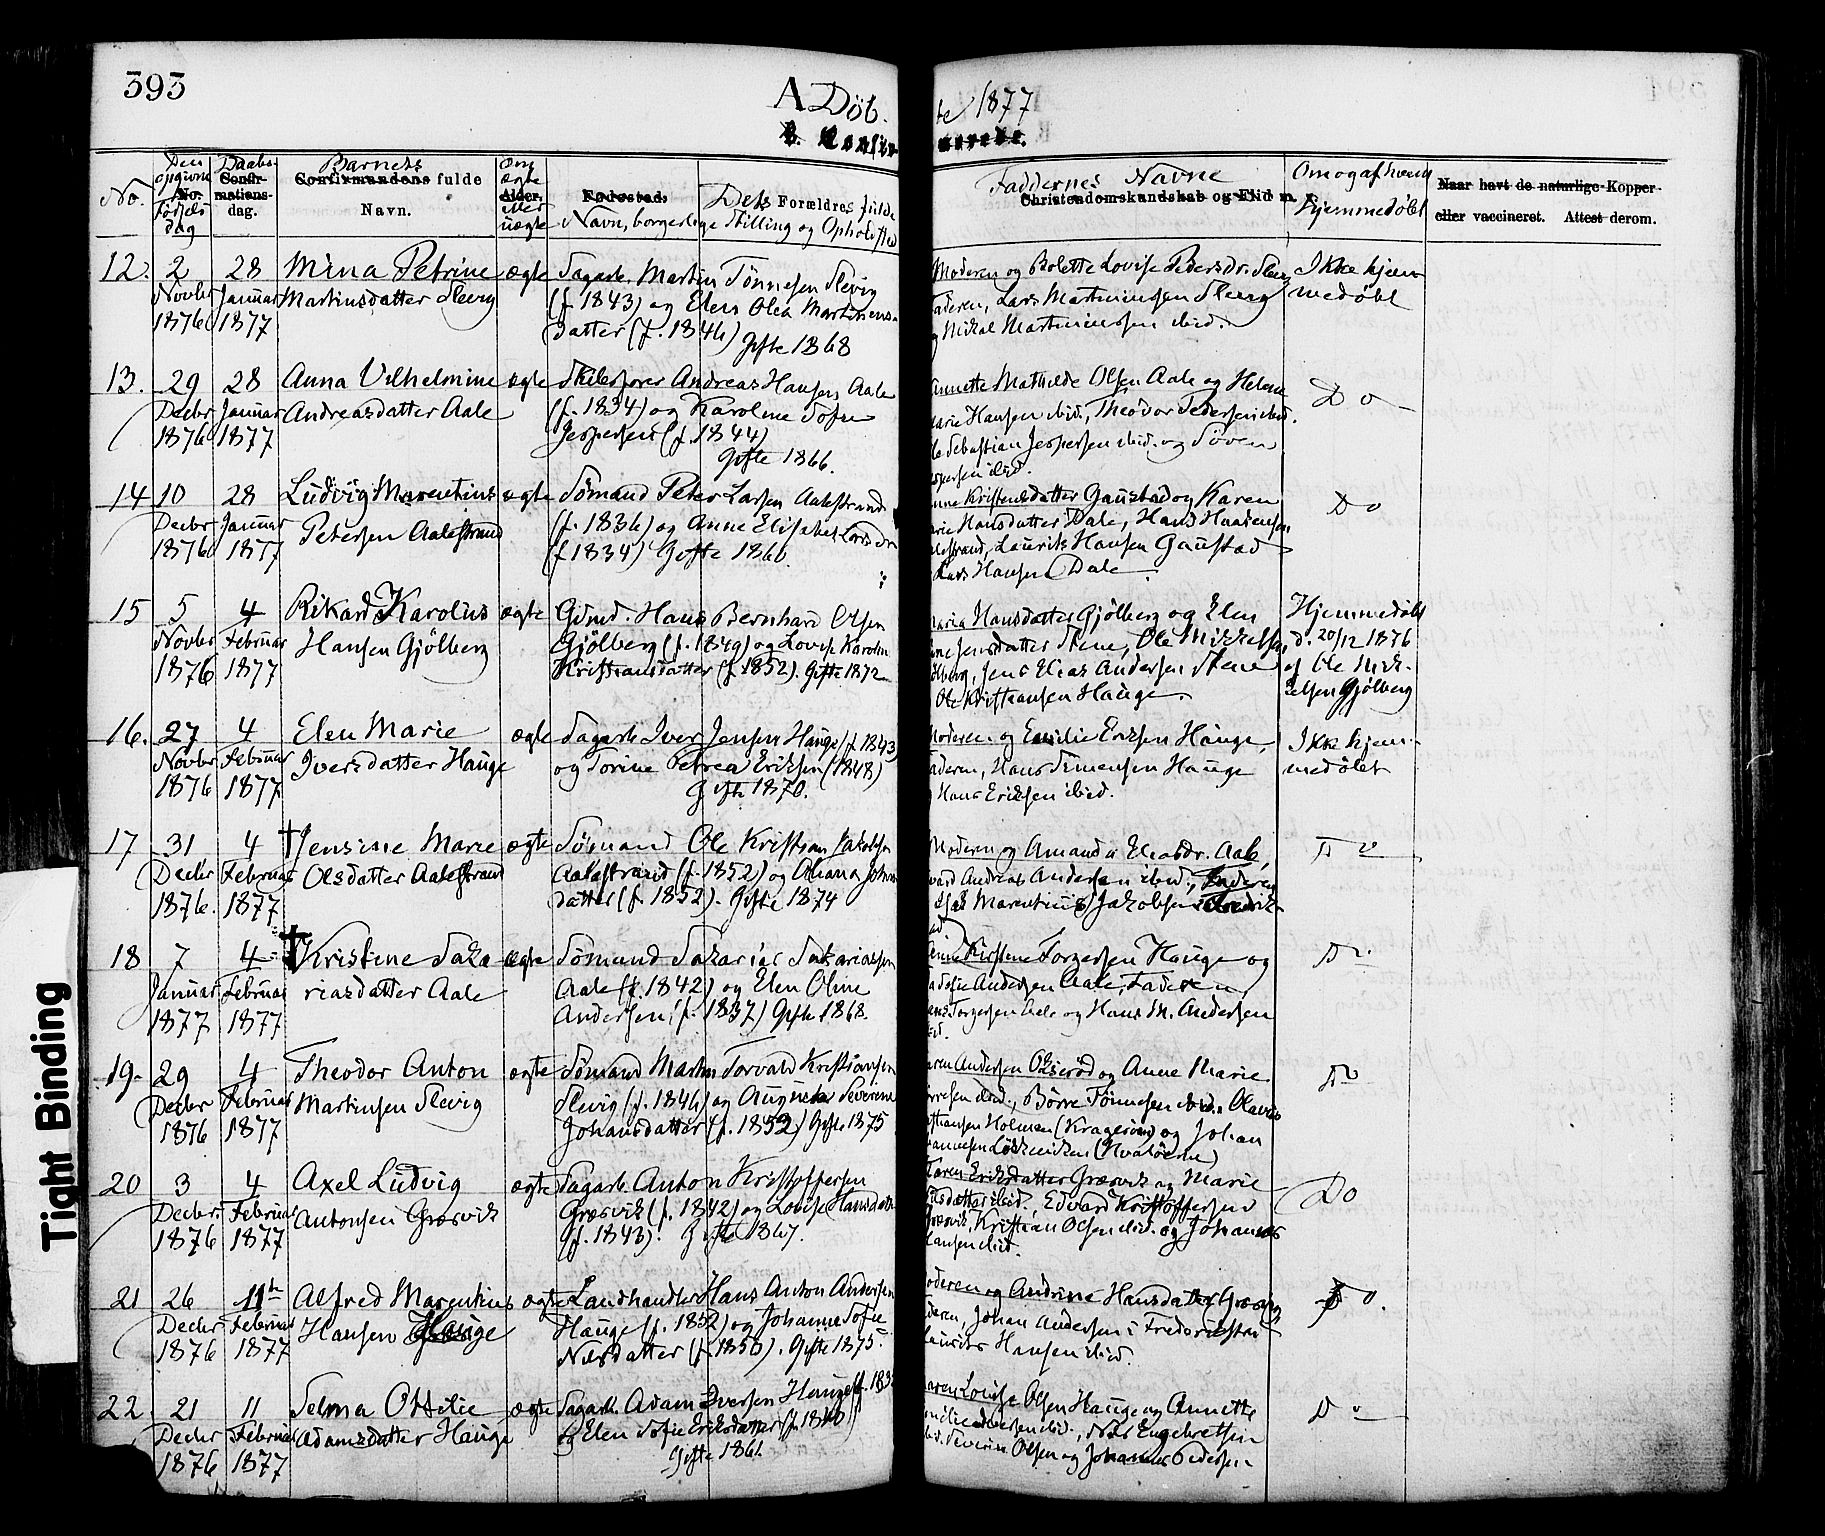 393
A Döb.
te 1877
B. Konfir
merede.
No.
Den opgivne Fødselsdag
No.
Daabs-
Confir-
mations-
dag.
Barnets
Confirmandens fulde
Navn.
Om ægte eller uægte
Alder.
Fødested.
Dets Forældres fulde
Navn, borgerlige Stilling og Opholdsted
Faddernes Navne
Christendomskundskab og Flid m.
Om og af hvem
hjemmedøbt
Naar havt de naturlige Kopper
eller vaccineret. Attest derom.
12. 2 28 Mina Petrine ægte Sagarb. Martin Tønnesen Slevig
Novbr Januar Martinsdatter Slevig (f. 1843) og Elen Olea Martinius-
1876 1877 datter (f. 1846) Gifte 1868
Moderen og Bolette Lovise Pedersdr. Slevig Ikke hjem
Faderen, Lars Martiniussen Slevig medøbt
Mikal Martiniussen ibid.
13. 29 28 Anna Vilhelmine ægte Andreas Hansen Aale
Decbr Januar Andreasdatter Aale (f. 1834) og Karoline Sofie
1876 1877 Jespersen (f. 1844)
Gifte 1866.
Annette Mathilde Olsen Aale og Helene Do
Marie Hansen ibid., Theodor Pedersen ibid.
Sebastian Jespersen ibid. og Søren
Jespersen ibid.
14 10 28 Ludvig Marentius ægte Sömand Peter Larsen Aalestrand
Decbr Januar Petersen Aalestrand (f. 1836) og Anne Elisabet Larsdr
1876 1877 (f 1834) Gifte 1860.
Kristensdatter Gaustad og Karen Do
Marie Hansdatter Dale, Hans
Aalestrand, Laurits Hansen Gaustad
Lars Hansen Dale.
15 5 4 Rikard Karolius ægte Gdmd. Hans Bernhard Olsen
Novbr Februar Hansen Gjölberg Gjölberg (f. 1849) og Lovise Karolin
1876 1877 Kristiansdatter (f. 1852). Gifte 1872
Maria Hansdatter Gjölberg og Elen Hjemmedøbt
Jensdatter Stene, Ole Mikkelsen d. 20/12 1876
Gjölberg, Jens Elias Andersen Stene af Ole Mik-
Ole Kristiansen Hauge. kelsen Gjölberg
16. 27 4 Elen Marie ægte Sagarb Iver Jensen Hauge (f 1843)
Novbr Februar Iversdatter Hauge og Torine Petrea Eriksen (1848)
1876 1877 Gifte 1870.
Moderen og Emilie Eriksen Hauge, Ikke hjem-
Faderen, Hans Simensen Hauge medøbt
Hans Eriksen ibid.
17 31 4 † Jensine Marie ægte Sömand Ole Kristian Jakobsen
Decbr Februar Olsdatter Aalestrand Aalestrand (f. 1852) og Oliana Johans
1876. 1877 datter (f. 1852). Gifte 1874
Moderen og Amanda Eliasdr. Aale, Do
Andreas Andersen ibid., Faderen
Marentius Jakobsen Fredrik-
stad
18 7 4 † Kristine Saka ægte Sömand Sakarias Sakariassen
Januar Februar riasdatter Aale Aale (f. 1842) og Elen Oline
1877 1877 Andersen, (f. 1837) Gifte 1868.
Kirstine Torgersen Hauge og Do
Sofie Andersen Aale, Faderen
Torgersen Aale og Hans M. Andersen
ibid.
19. 29 4 Theodor Anton ægte Sömand Martin Torvald Kristiansen
Decbr Februar Martinsen Slevig Slevig (f. 1846) og Augusta Severine
1876 1877 Johansdatter (f. 1852) Gifte 1875
Karen Andersen og Anne Marie Do
ibid., Börre Tönnesen ibid. Olavus
Kristiansen Holmen (Kragerøen) og Johan
(Hvaløerne)
20 3 4 Axel Ludvig ægte Sagarb. Anton Kristoffersen
Decbr. Februar Antonsen Græsvik Græsvik (f. 1842) og Lovise Hansdatter
1876 1877 (f. 1843). Gifte 1867.
Karen Eriksdatter Græsvik og Marie Do
ibid., Edvard Kristoffersen
Græsvik, Kristian Olsen ibid. og Johannes
Hansen ibid.
21 26 11te Alfred Marentius ægte Landhandler Hans Anton Andersen
Decbr Februar Hansen Hauge Hauge (f. 1852) og Johanne Sofie
1876 1877 Nilsdatter (f. 1853). Gifte 1875.
Moderen og Andrine Hansdatter Græsvig Do.
Faderen, Johan Andersen i Fredrikstad
Laurits Hansen ibid.
22. 21 11 Selma Ottilie ægte Sagarb. Adam Iversen Hauge (f. 183
Decbr Februar Adamsdatter Hauge og Elen Sofie Eriksdatter (f. 1840)
1876 1877 Gifte 1861.
Karen Lovise Olsen Hauge og Annette Do
Emilie Iversen ibid., Nils Engebretsen
ibid. Severin Olsen og Johannes Pedersen
Tight Binding